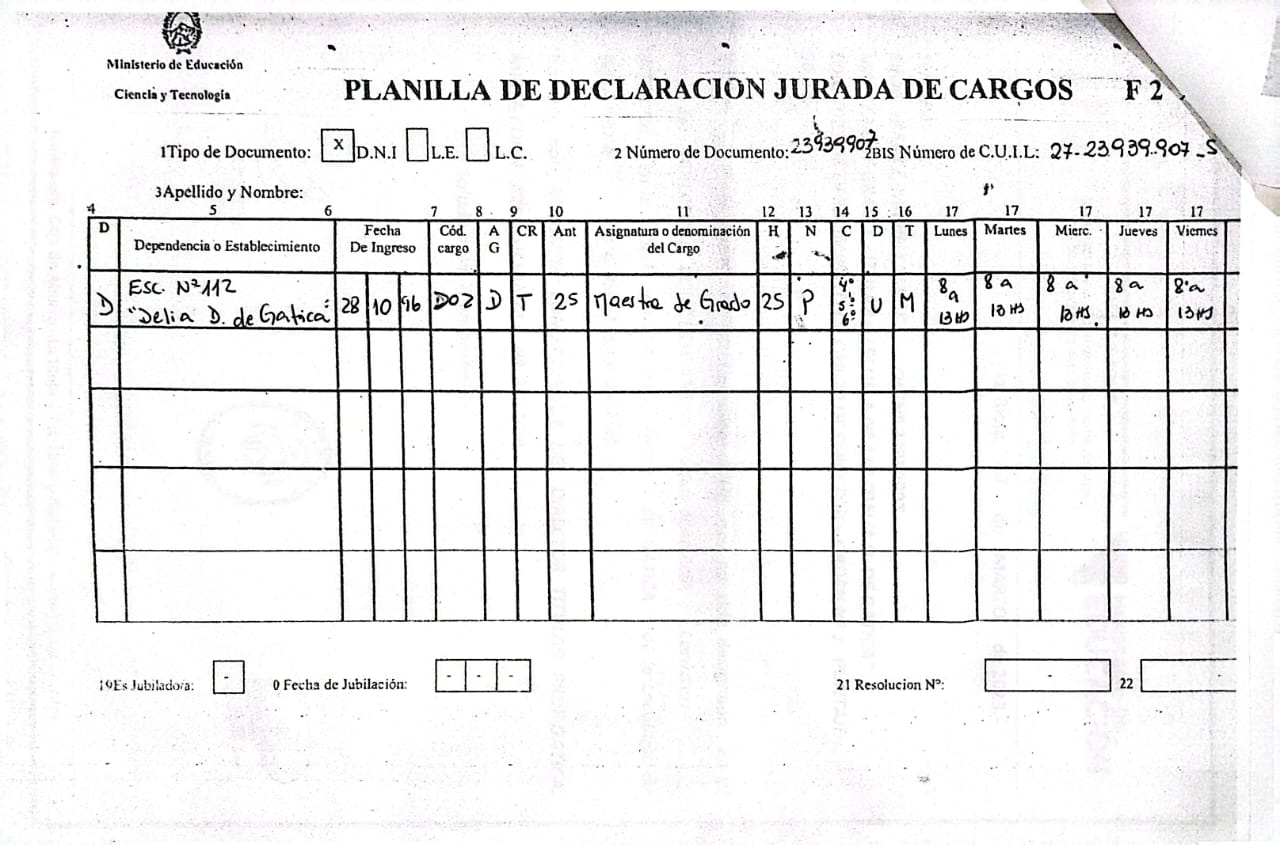 Ministerio de Educación
Ciencia y Tecnología
PLANILLA DE DECLARACION JURADA DE CARGOS F 2
1Tipo de Documento: X D.N.I L.E. L.C. 2 Número de Documento: 23939907 2BIS Número de C.U.I.L: 27-23939907-5
3Apellido y Nombre:
4 5 6 7 8 9 10 11 12 13 14 15 16 17 17 17 17 17
D Dependencia o Establecimiento Fecha De Ingreso Cód. cargo A G CR Ant Asignatura o denominación del Cargo H N C D T Lunes Martes Mierc. Jueves Viernes
D Esc. Nº 112 "Delia D. de Gatica" 28 10 96 D02 D T 25 Maestra de Grado 25 P 4º 5º 6º U M 8 a 13 HS 8 a 13 HS 8 a 13 HS 8 a 13 HS 8 a 13 HS
19Es Jubilado/a: - 0 Fecha de Jubilación: - - - 21 Resolucion Nº: - 22